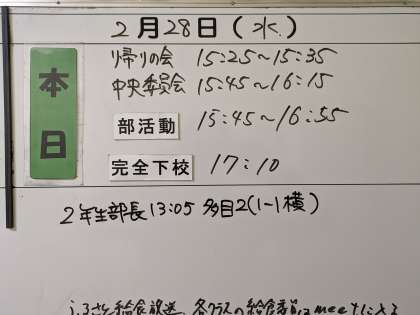 2月28日(水)
本日
帰りの会 15:25~15:35
中央委員会 15:45~16:15
部活動 15:45~16:55
完全下校 17:10
2年生部長 13:05 多目2(1-1横)
給食放送 各クラスの給食委員は meetに入る